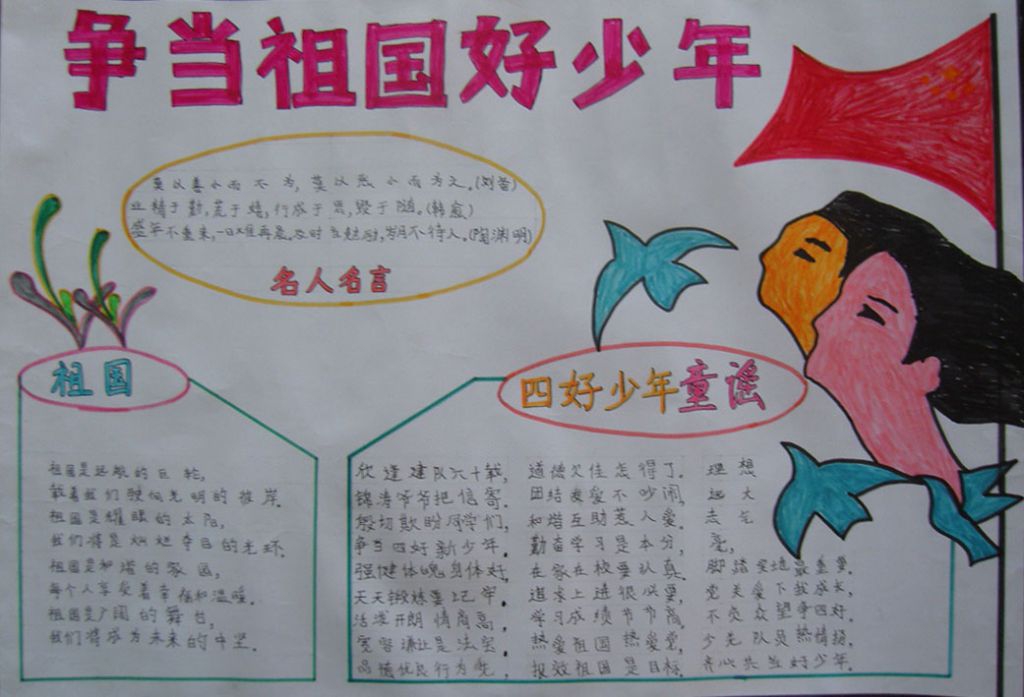 争当祖国好少年
莫以善小而不为,莫以恶小而为之。(刘备)
业精于勤,荒于嬉,行成于思,毁于随。(韩愈)
盛年不重来,一日难再晨。及时当勉励,岁月不待人。(陶渊明)
名人名言
祖国
祖国是 的巨轮,
载着我们驶向光明的彼岸。
祖国是耀眼的太阳,
我们将是 夺目的光环。
祖国是和谐的家园,
每个人享受着幸福和温暖。
祖国是广阔的舞台,
我们将成为未来的中坚。
四好少年童谣
欣逢建队六十载,
锦涛爷爷把信寄。
殷切 盼同学们,
争当四好新少年。
强健体魄身体好,
天天锻炼要记牢。
活泼开朗情商高,
宽容谦让是法宝。
品德优良行为先,
道德欠佳怎得了。
团结友爱不吵闹,
和谐互助惹人爱。
勤奋学习是本分,
在家在校要认真。
追求上进很 ,
学习成绩节节高,
热爱祖国热爱党,
报效祖国是目标。
理想
远大
志气
高,
脚踏实地最重要。
党关爱下我成长,
不负众望争四好。
少先队员热情 ,
齐心共当好少年。